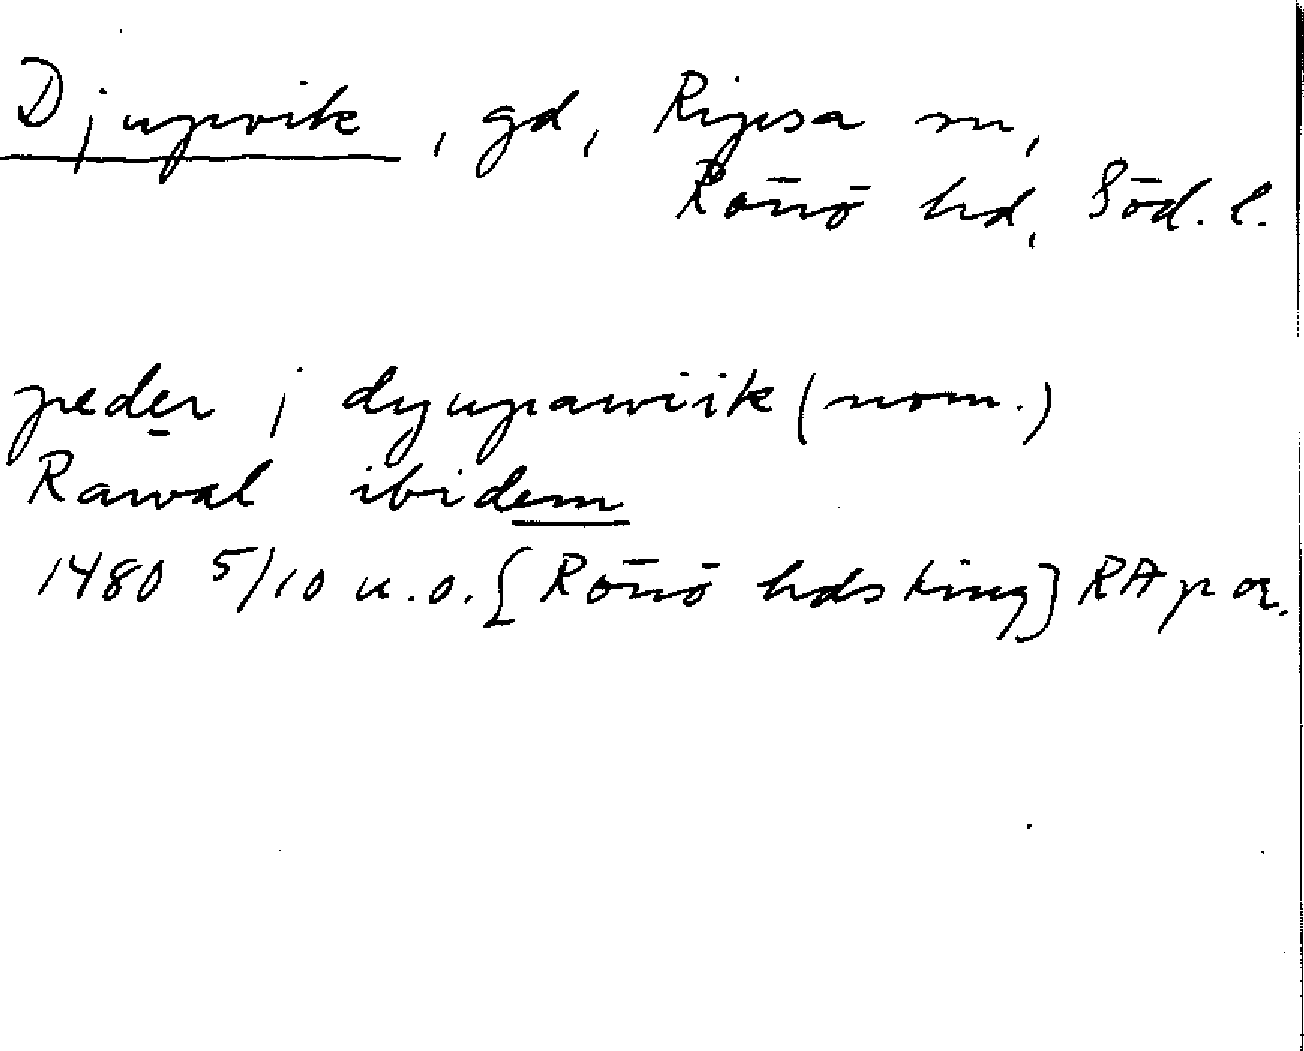 Djupvik, gd, Ripsa sn,
Rönö hd, Söd. l.
peder j dyupawiik (nom.)
Rawal ibidem
1480 5/10 u.o. [Rönö hds ting] RAp or.